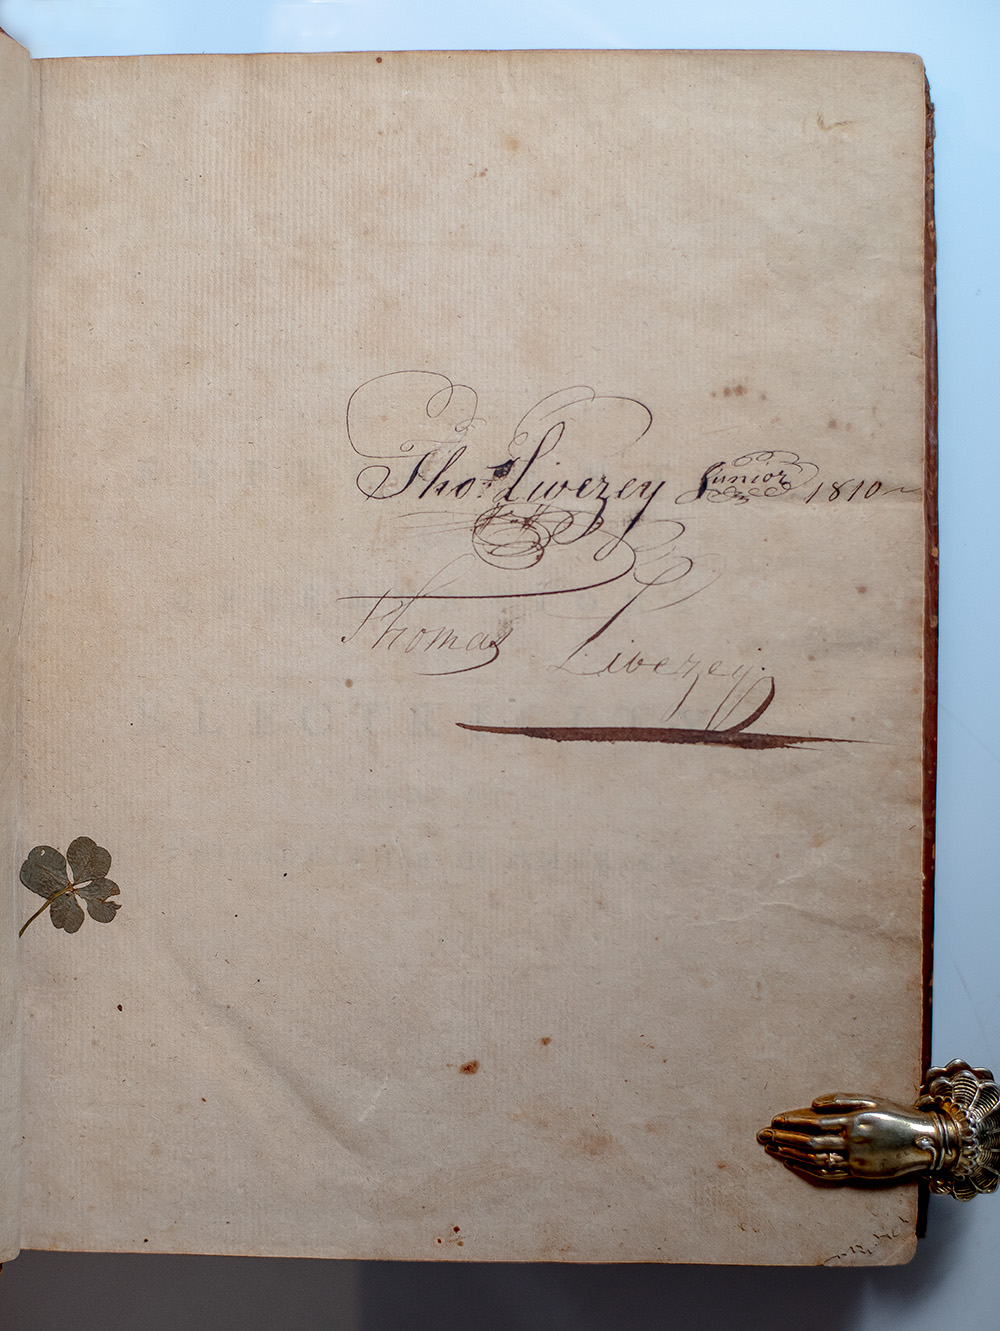 Thos. Livezey Junior 1810
Thomas Livezey.